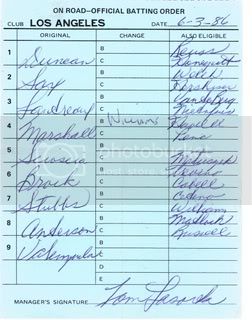 ON ROAD—OFFICIAL BATTING ORDER
CLUB LOS ANGELES DATE 6-3-86
ORIGINAL CHANGE ALSO ELIGIBLE
1 Duncan B Reuss
C Honeycutt
2 Sax B Welch
C Hershiser
3 Landreaux B
C
4 Marshall B Williams Powell
C Pena
5 Scioscia B
C
6 Brock B Trevino
C Cabell
7 Stubbs B Cedeno
C Williams
8 Anderson B Matuszek
C Russell
9 Valenzuela B
C
D
E
MANAGER'S SIGNATURE Tom Lasorda
photobucket